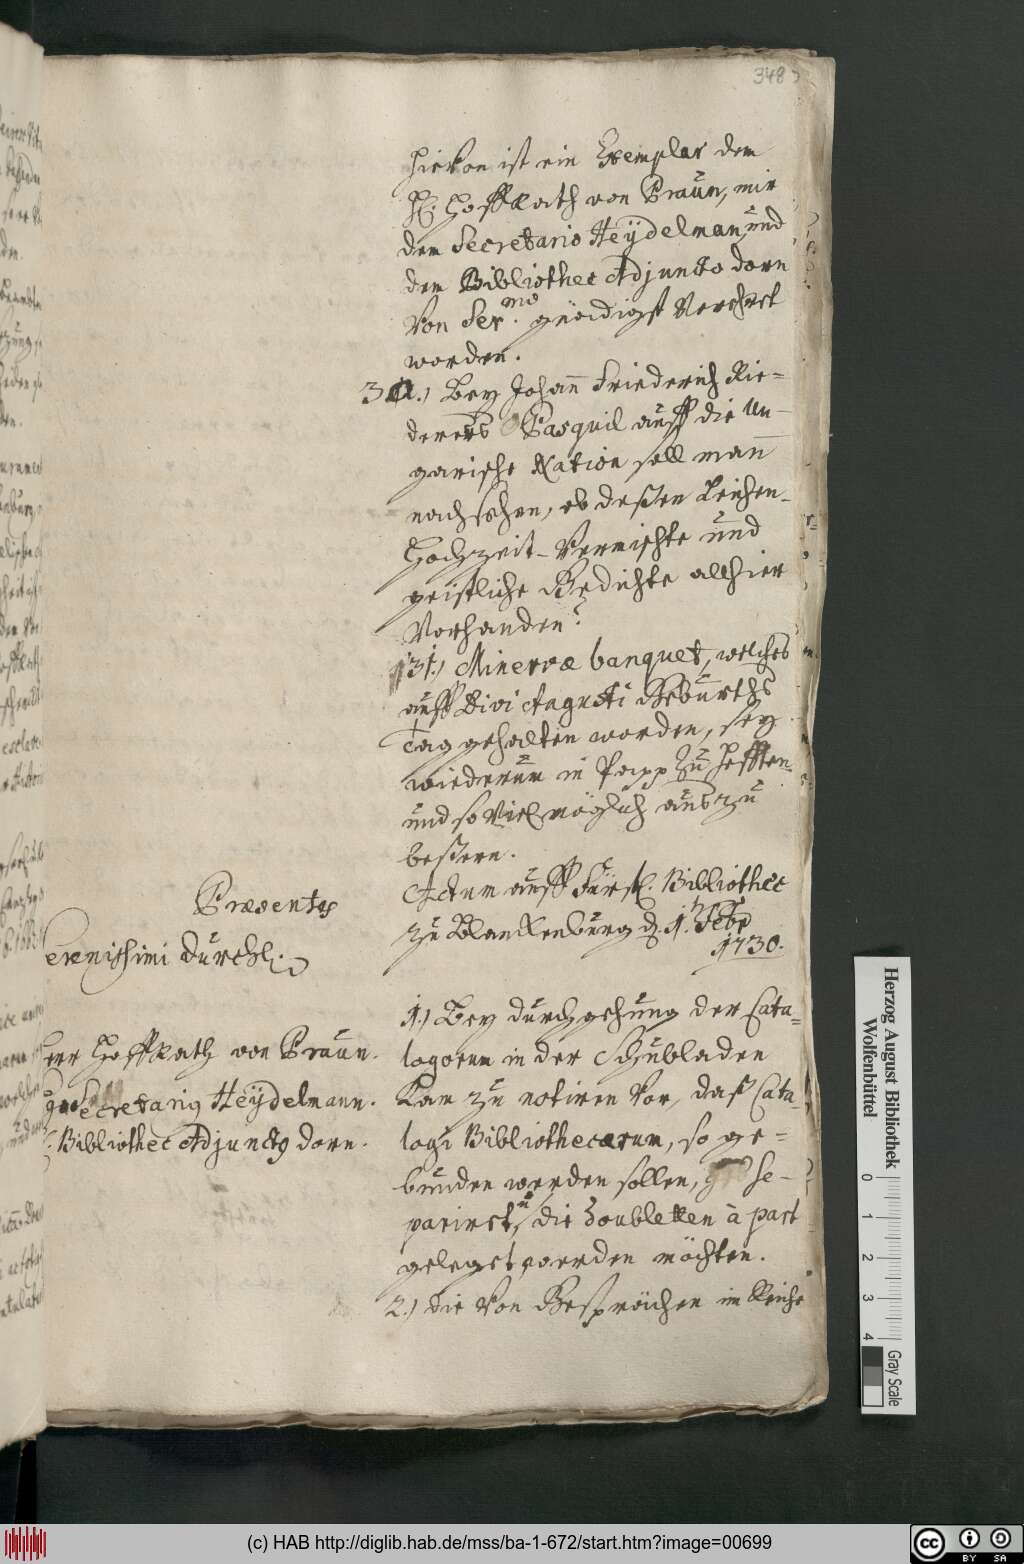 348
hievon ist ein Exemplar dem
H. HoffRath von Praun, mir
dem Secretario Heÿdelman und
dem Bibliothec Adjuncto Dorn
von Ser.mo gnädigst verehret
worden.
30.) Beÿ Johann Friederich Rie-
derers Pasquil auff die Un-
garische Nation soll mann
nachsehen, ob deßen Leichen-
Hochzeit- vermischte und
geistliche Gedichte allhier
vorhanden?
31.) Minervæ banquet, welches
auff Divi Augusti Geburths
Tag gehalten worden, seÿ
wiederum in Papp zu hefften
und so viel möglich auszu
beßern.
Actum auff Fürstl. Bibliothec
zu Blanckenburg d. 1. Febr
1730.
Præsentes
erenissimi Durchl.
Herr HoffRath von Praun.
Secretarius Heÿdelmann.
Bibliothec Adjunctus Dorn.
1.) Beÿ durchgehung der Cata-
logorum in der Schubladen
kam zu notiren vor, daß Cata-
logi Bibliothecarum, so ge-
bunden werden sollen, se-
pariret, u. die Doubletten à part
geleget werden möchten.
2.) die von Gesprächen im Reiche
Herzog August Bibliothek
Wolfenbüttel
0 1 2 3 4
Gray Scale
(c) HAB http://diglib.hab.de/mss/ba-1-672/start.htm?image=00699
cc BY SA